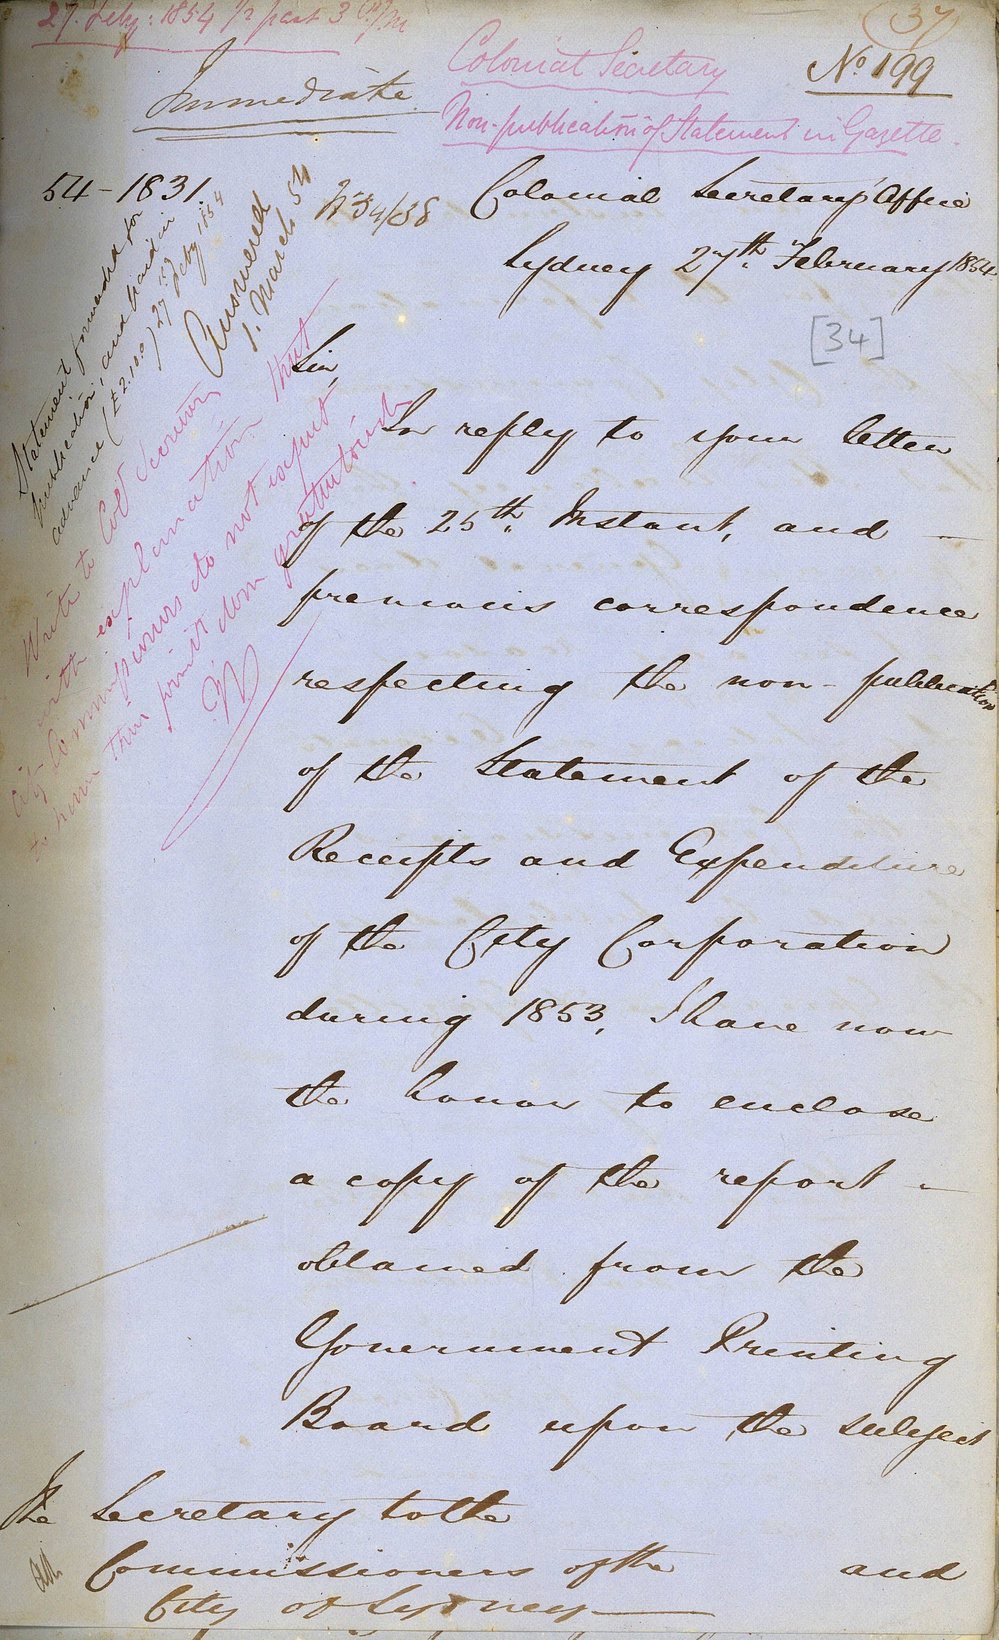 27. Feby: 1854 1/2 past 3 P.M
(37)
Immediate
Colonial Secretary
Non-publication of Statement in Gazette.
No 199
54-1831.
54/38
Answered
1. March 54
Statement forwarded for
publication, and paid in
advance (£2.10.0) 27 Feby 1854
Write to Col Secretary
with explanation that
City Commissioners do not expect
to have their printing done gratuitously
Colonial Secretary's Office
Sydney 27th. February 1854
[34]
Sir,
In reply to your letter
of the 25th. Instant, and
previous correspondence
respecting the non-publication
of the Statement of the
Receipts and Expenditure
of the City Corporation
during 1853, I have now
the honor to enclose
a copy of the report
obtained from the
Government Printing
Board upon the subject
The Secretary to the
Commissioners of the
City of Sydney
and